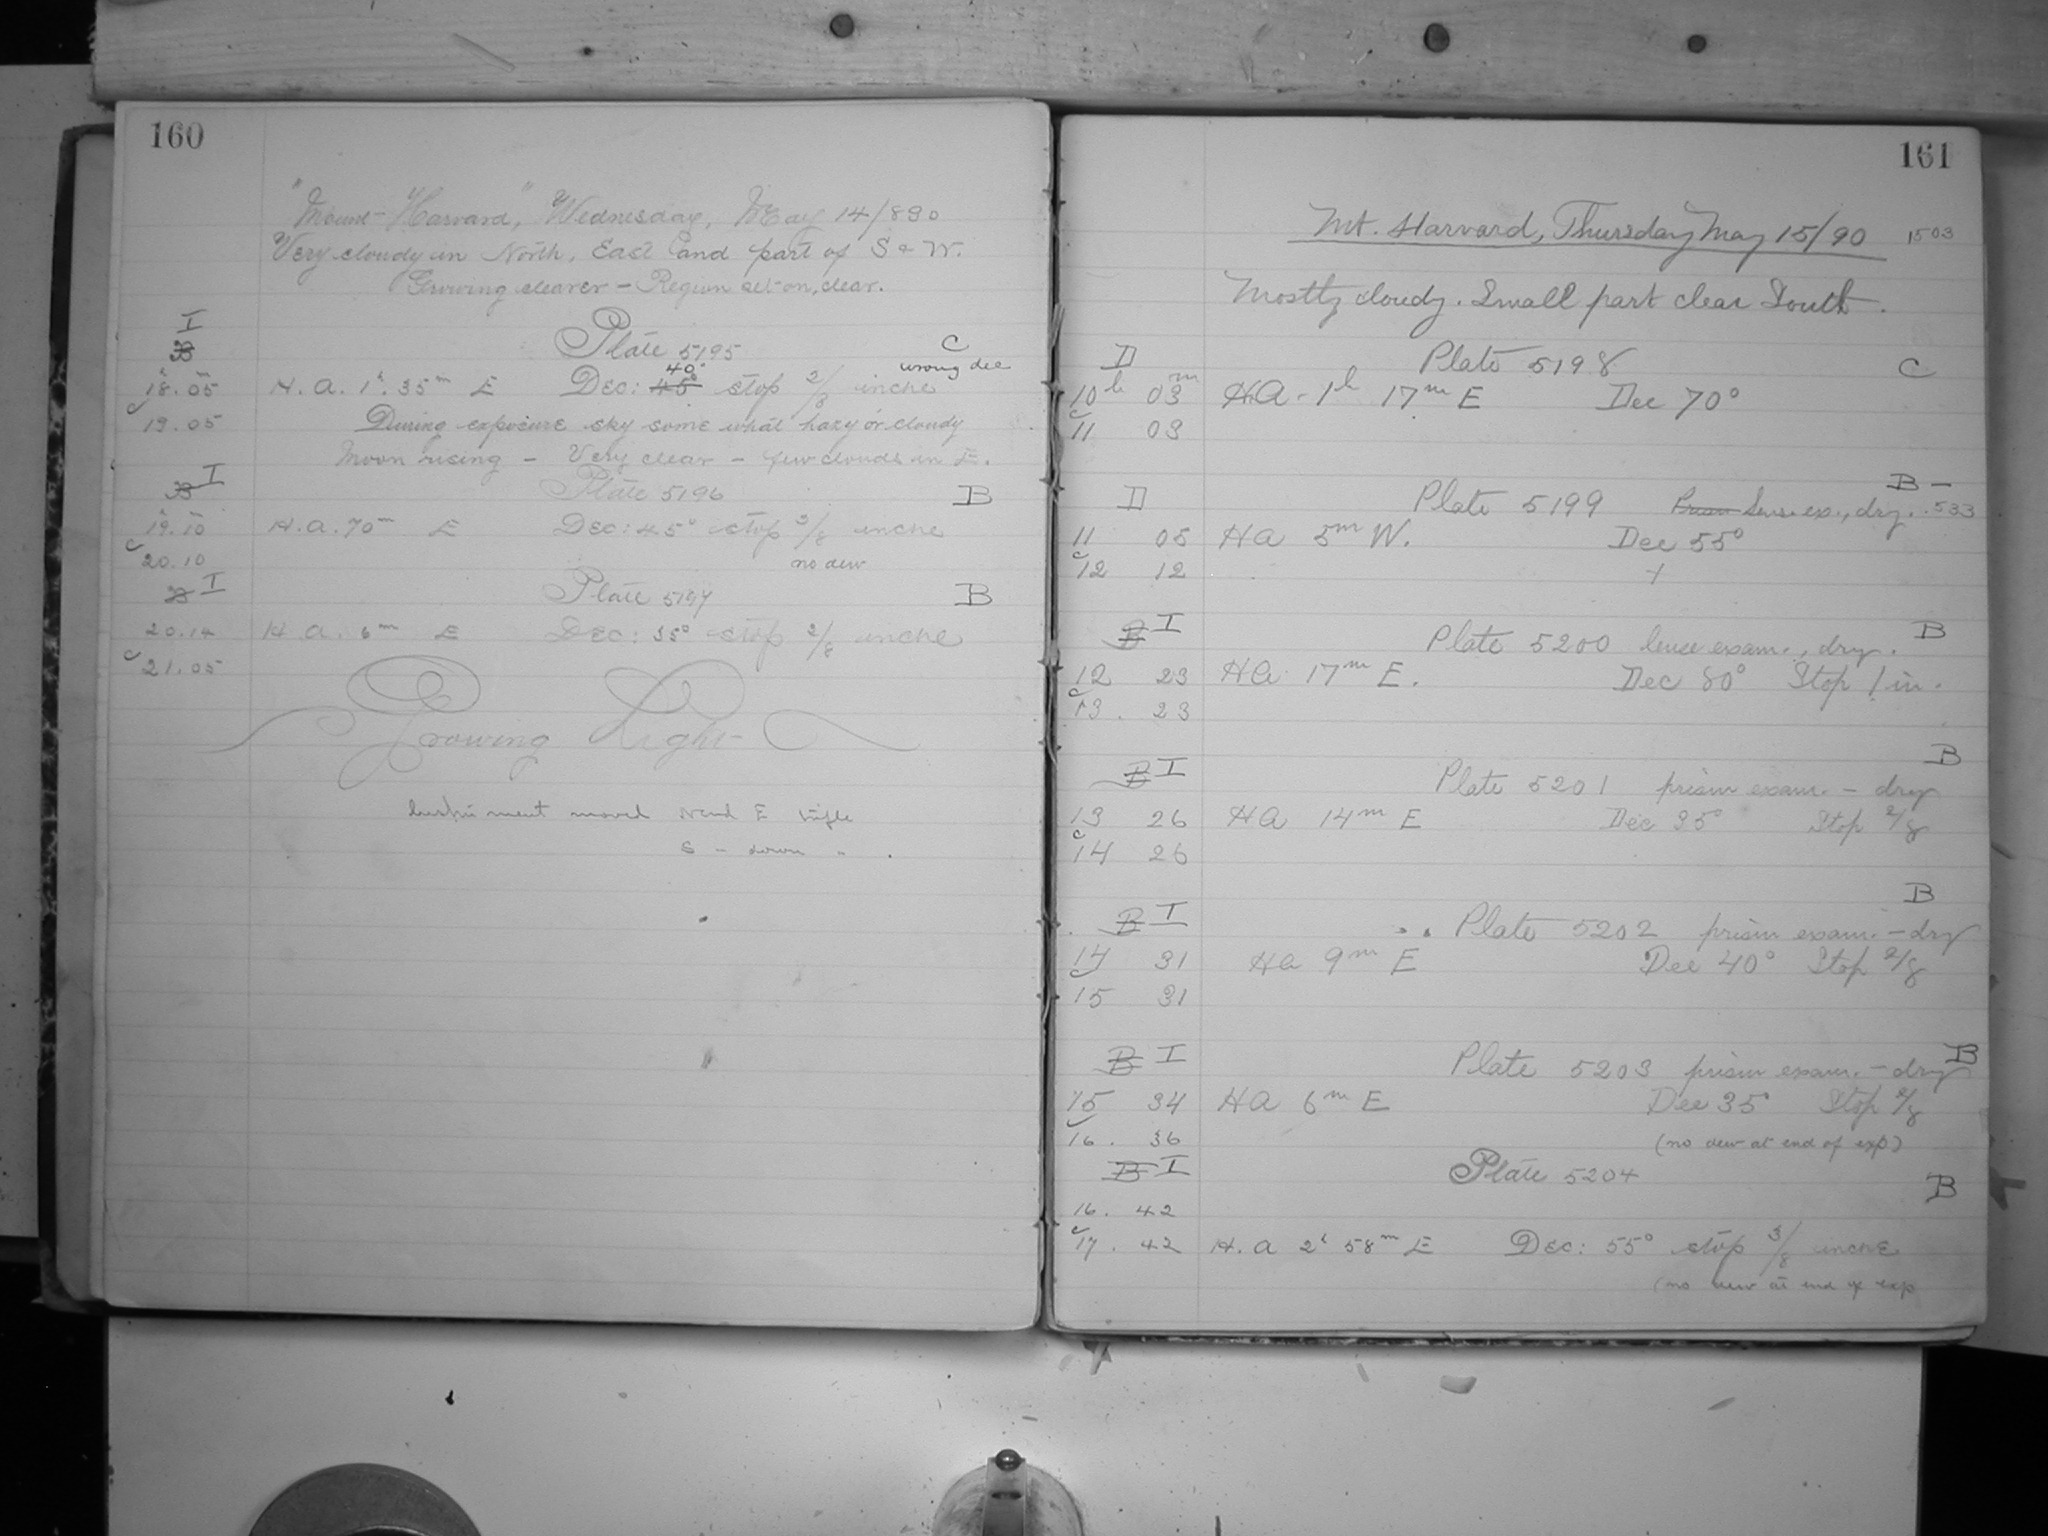 160
"Mount-Harvard," Wednesday, May 14/890
Very cloudy in North, East and part of S & W.
Growing clearer - Region set-on, clear.
I
B
Plate 5195
C
wrong dec
18h.05m H.A. 1h. 35m E Dec: 45° 40° stop 2/8 inche
19.05 During exposure sky some what hazy or cloudy
Moon rising - Very clear - few clouds in E.
B I
Plate 5196
B
19h.10m H.A. 70m E Dec: 45° stop 3/8 inche
20.10 no dew
B I
Plate 5197
B
20.14 H.A. 6m E Dec: 35° stop 2/8 inche
21.05
Growing Light
Instrument moved N end E trifle
S - down " .
161
Mt. Harvard, Thursday May 15/90 1503
Mostly cloudy. Small part clear South.
D Plate 5198 C
10h 03m HA - 1h 17m E Dec 70°
11 03
B -
D Plate 5199 Prism Lens ex., dry. .533
11 05 HA 5m W. Dec 55°
12 12
B I Plate 5200 lense exam., dry. B
12 23 HA 17m E. Dec 80° Stop 1 in.
13. 23
B
B I Plate 5201 prism exam. - dry
13 26 HA 14m E Dec 35° Stop 2/8
14 26
B
B I Plate 5202 prism exam. - dry
14 31 HA 9m E Dec 40° Stop 2/8
15 31
B I Plate 5203 prism exam. - dry B
15 34 HA 6m E Dec 35° Stop 2/8
16. 36 (no dew at end of exp)
B I Plate 5204
B
16. 42
17. 42 H.A 2h 58m E Dec: 55° stop 3/8 inche
(no dew at end of exp